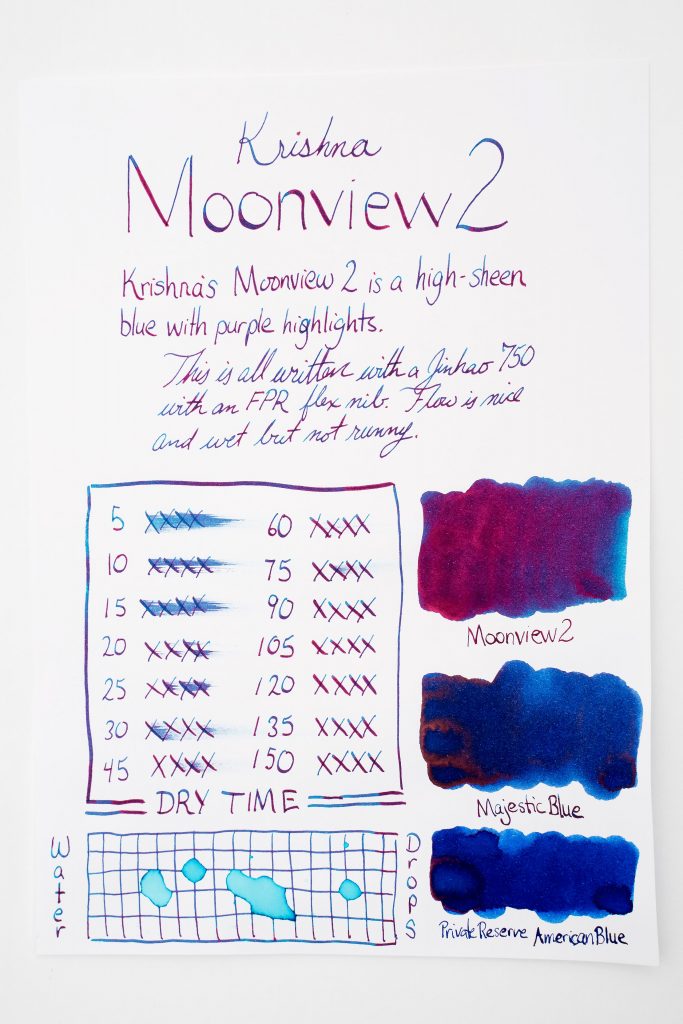 Krishna
Moonview 2
Krishna's Moonview 2 is a high-sheen
blue with purple highlights.
This is all written with a Jinhao 750
with an FPR flex nib. Flow is nice
and wet but not runny.
5 XXXX 60 XXXX
10 XXXX 75 XXXX
15 XXXX 90 XXXX
20 XXXX 105 XXXX
25 XXXX 120 XXXX
30 XXXX 135 XXXX
45 XXXX 150 XXXX
DRY TIME
Moonview 2
Majestic Blue
Water
Drops
Private Reserve American Blue